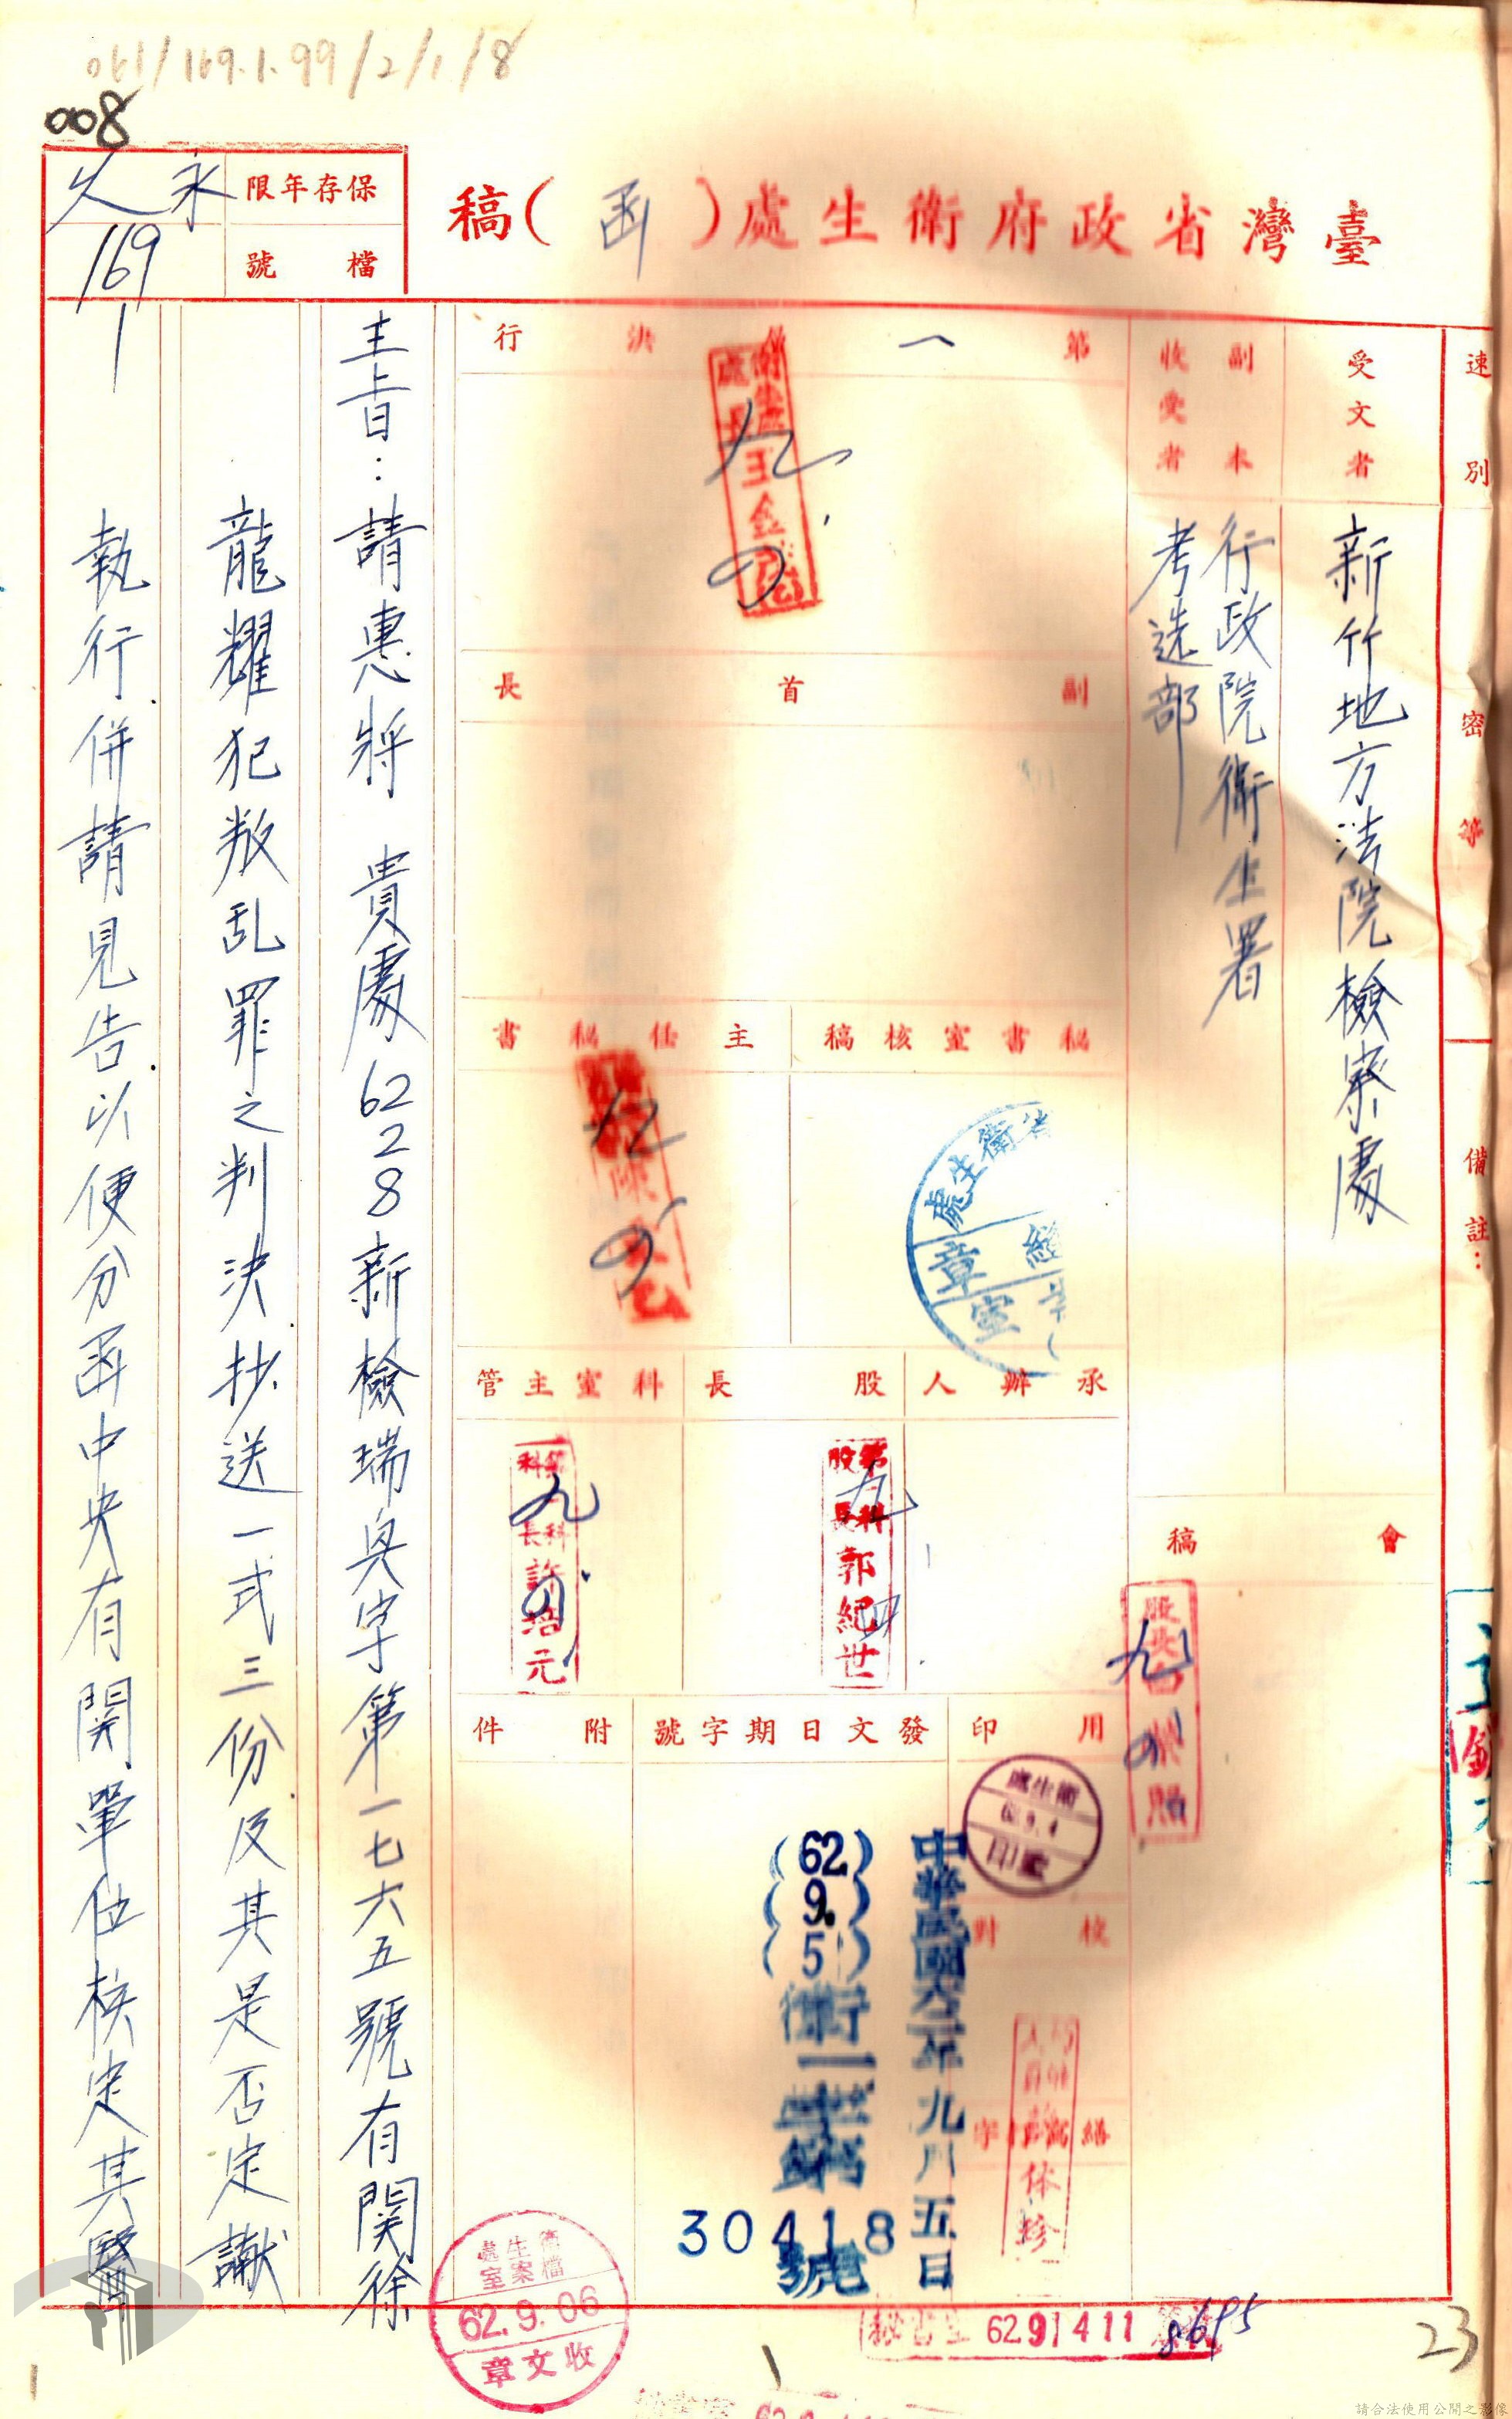 008
保存年限
永久
檔號
169
1
臺灣省政府衛生處(函)稿
速別
密等
備註：
受文者
新竹地方法院檢察處
副本收受者
行政院衛生署
考選部
會稿
九
第一
決行
九
副首長
秘書室核稿
主任秘書
承辦人
股長
第一科股長郭紀世
九
科室主管
第一科科長許培元
九
用印
衛生處
62.9.4
監印
校對
繕
發文日期字號
中華民國六二年九月五日
(62)
(9.)
(5)
衛一
30418
號
附件
主旨：請惠將 貴處62 2 8新檢瑞與字第一七六五號有関徐
龍耀犯叛乱罪之判決抄送一式三份及其是否定讞
執行併請見告以便分函中央有関單位核定其醫
衛生處
檔案室
62.9.06
收文章
秘書室 62 9 14 11
8695
23
1
請合法使用公開之影像